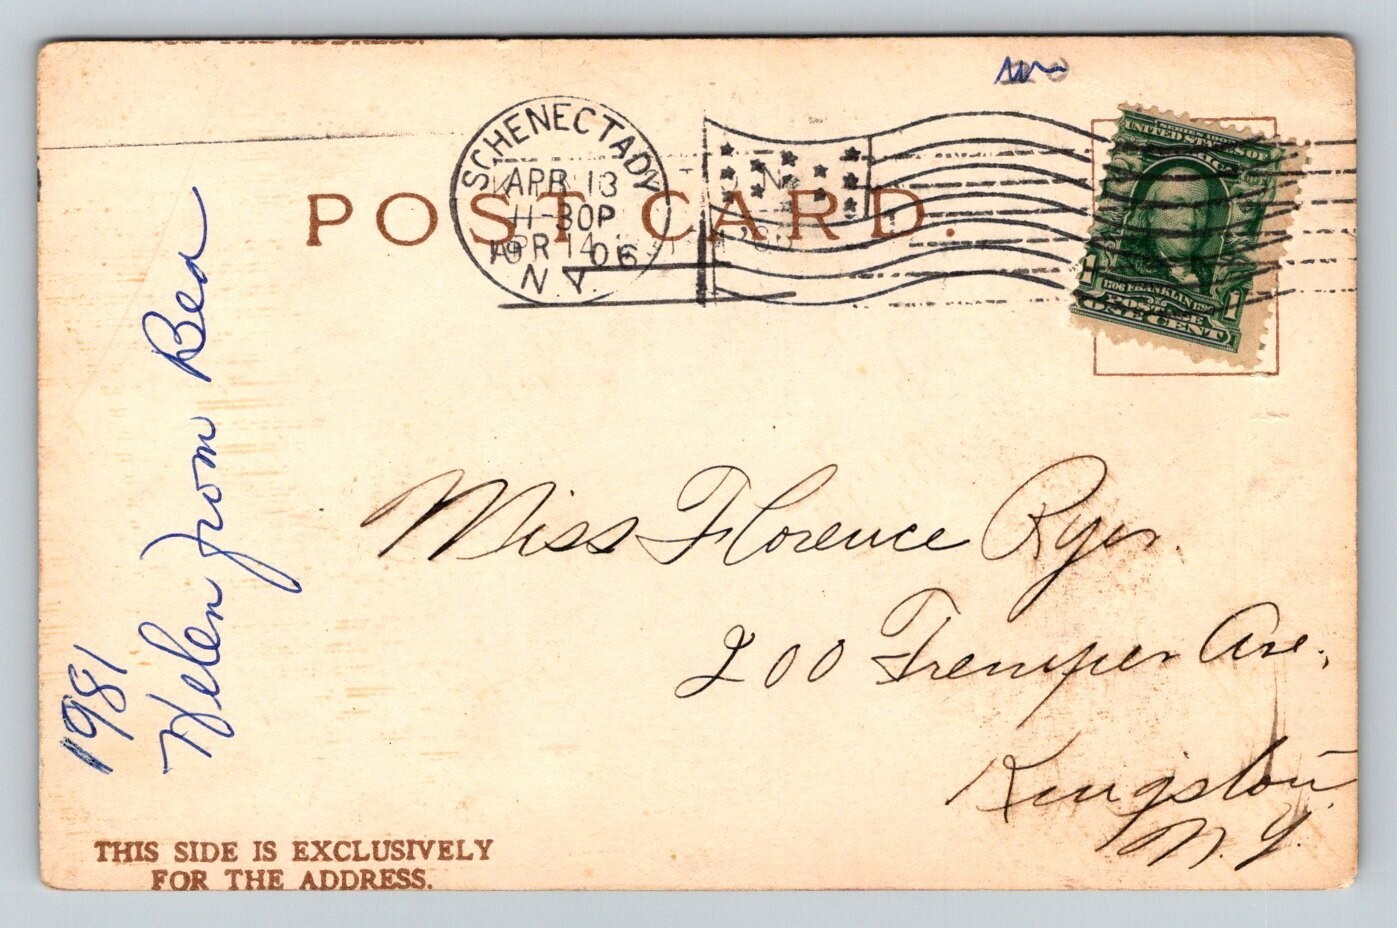 FOR THE ADDRESS.
SCHENECTADY
APR 13
11-30P
06
N.Y.
POST CARD.
SERIES 1902
UNITED STATES OF
AMERICA
1706 FRANKLIN 1790
1 1
ONE CENT
Miss Florence Ryer
200 Tremper Ave.
Kingston
N.Y.
1981
Helen from Bea
THIS SIDE IS EXCLUSIVELY
FOR THE ADDRESS.